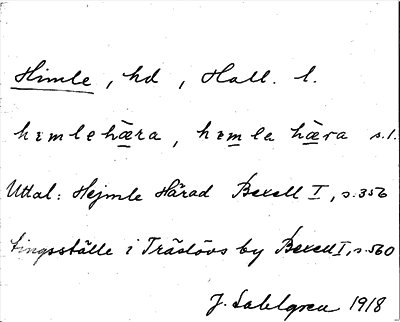 Himle, hd, Hall. l.
hɪmlehæra, hɪmla hæra s.l.
Uttal: Hejmle Härad Bexell I, s. 356
tingsställe i Träslövs by Bexell I, s. 560
J. Sahlgren 1918